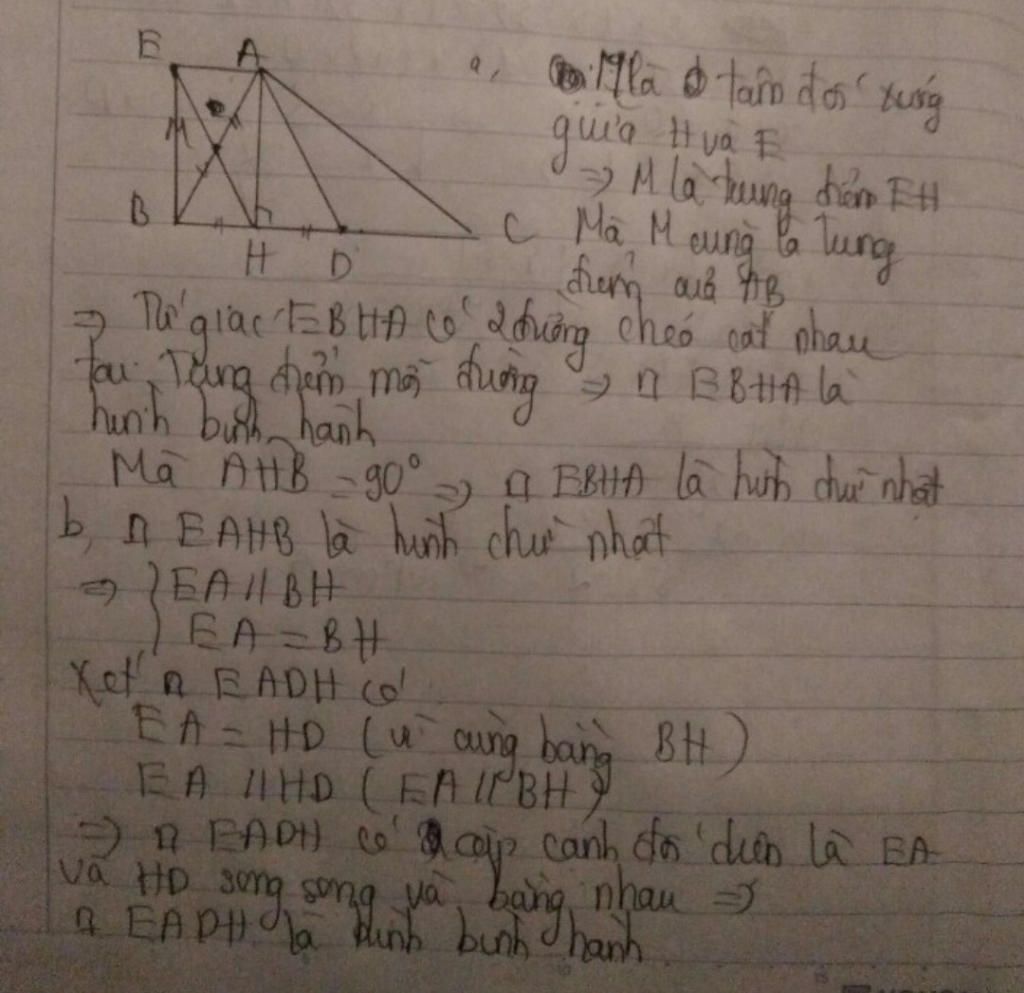 E A
M
B H D C
a, M là tâm đối xứng
giữa H và E
=> M là trung điểm EH
Mà M cũng là trung
điểm của AB
=> Tứ giác EBHA có 2 đường chéo cắt nhau
tại trung điểm mỗi đường => □ EBHA là
hình bình hành
Mà AHB = 90° => □ EBHA là hình chữ nhật
b, □ EAHB là hình chữ nhật
=> } EA // BH
EA = BH
Xét □ EADH có
EA = HD (vì cùng bằng BH)
EA // HD (EA // BH)
=> □ EADH có cặp cạnh đối diện là EA
và HD song song và bằng nhau =>
□ EADH là hình bình hành